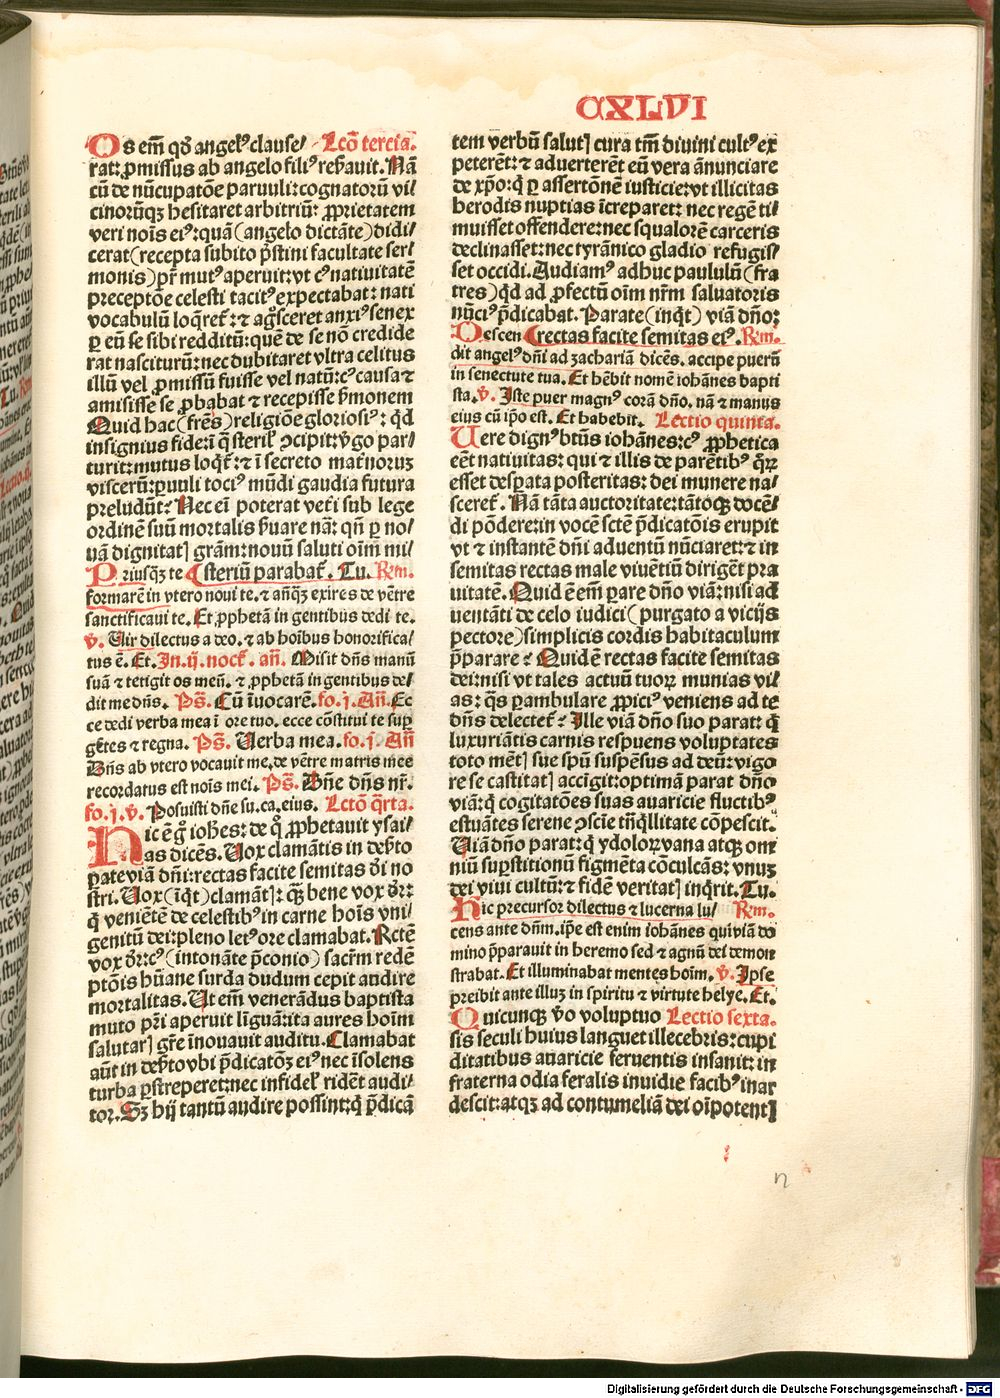 CXLVI
Os em̄ qd̕ angelꝰ clause/ Lcō tercia.
rat: ꝓmissus ab angelo filiꝰ reẜauit. Nā
cū de nūcupatōe paruuli: cognatorū vi/
cinorūqꝫ hesitaret arbitriū: ꝓprietatem
veri nois̄ eiꝰ: quā (angelo dictāte) didi/
cerat (recepta subito p̄stini facultate ser/
monis) pr̄ mutꝰ aperuit: vt cꝰ natiuitatē
preceptōe celesti tacitꝰ expectabat: nati
vocabulū loq̄ret̄: ⁊ ag̊sceret anxiꝰ senex
ꝑ eū se sibi redditū: quē de se nō credide
rat nasciturū: nec dubitaret vltra celitus
illū vel ꝓmissū fuisse vel natū: cꝰ causa ⁊
amisisse se ꝓbabat ⁊ recepisse ẜmonem
Quid hac (frēs) religiōe gloriosiꝰ: qd̕
insignius fide: ī q̄ sterilꝭ ↄcipit: v̓go par/
turit: mutus loq̄t̄: ⁊ ī secreto mat̄noruꝫ
viscerū: ꝑuuli tociꝰ mūdi gaudia futura
preludūt? Nec eī poterat vet̓i sub lege
ordinē suū mortalis ẜuare nā̄: qn̄ ꝑ no/
uā dignitatꝭ grām: nouū saluti oīm mi/
Priusqꝫ te (steriū parabat̄. Tu. Rm̄.
formarē in vtero noui te. ⁊ anq̄ꝫ exires de vētre
sanctificaui te. Et ꝓphetā in gentibus dedi te.
v̓. Uir dilectus a deo. ⁊ ab hoībus honorifica/
tus ē. Et. In. ij. noct̄. an̄. Misit dn̄s manū
suā ⁊ tetigit os meū. ⁊ ꝓphetā in gentibus de/
dit me dn̄s. Ps̄. Cū īuocarē. fo. j. An̄. Ec
ce dedi verba mea ī ore tuo. ecce cōstitui te suꝑ
gētes ⁊ regna. Ps̄. Uerba mea. fo. j. An̄
Dn̄s ab vtero vocauit me. de vētre matris mee
recordatus est nois̄ mei. Ps̄. Dn̄e dn̄s nr̄.
fo. j. v̓. Posuisti dn̄e su. ca. eius. Lctō q̄rta.
Hic ē g̊ iohēs: de q̊ ꝓphetauit ysai/
as dicēs. Uox clamātis in deẜto
ꝑate viā dn̄i: rectas facite semitas di̓ no
stri. Uox (īqt) clamātꝭ: qꝫ bene vox dr̄:
q̄ veniētē de celestibꝰ in carne hois̄ vni/
genitū dei: pleno letꝰ ore clamabat. Rctē
vox dr̄: cꝰ (intonāte p̄conio) sacrm̄ redē
ptōis hūane surda dudum cepit audire
mortalitas. Ut em̄ venerādus baptista
muto pr̄i aperuit līguā: ita aures hoīm
salutarꝭ gr̄e īnouauit auditu. Clamabat
aūt in deẜto vbi p̄dicatōꝫ eiꝰ nec īsolens
turba ꝑstreperet: nec infidelꝭ ridēt audi/
tor. Sꝫ hij tantū audire possint: q̄ p̄dicā
tem verbū salutꝭ cura tm̄ diuini cultꝰ ex
peterēt: ⁊ aduerterēt eū vera ānunciare
de xp̄o: q̄ ꝑ assertōnē iusticie: vt illicitas
herodis nuptias īcreparet: nec regē ti/
muisset offendere: nec squalorē carceris
declinasset: nec tyrānico gladio refugis/
set occidi. Audiamꝰ adhuc paululū (fra
tres) qd̕ ad ꝓfectū oīm nr̄m saluatoris
nūciꝰ p̄dicabat. Parate (inqt) viā dn̄o:
Descen (rectas facite semitas eiꝰ. Rm̄.
dit angelꝰ dn̄i ad zachariā dicēs. accipe puerū
in senectute tua. Et hēbit nomē iohānes bapti
sta. v̓. Iste puer magnꝰ corā dn̄o. nā ⁊ manus
eius cū ip̄o est. Et habebit. Lectio quinta.
Uere dignꝰ btūs iohānes: cꝰ ꝓphetica
eēt natiuitas: qui ⁊ illis de parētibꝰ q̄ꝝ
esset desꝑata posteritas: dei munere na/
sceret̄. Nā tāta auctoritate: tātoqꝫ docē/
di pōdere: in vocē sctē p̄dicatōis erupit
vt ⁊ instantē dn̄i aduentū nūciaret: ⁊ in
semitas rectas male viuētiū dirigēt pra
uitatē. Quid ē em̄ ꝑare dn̄o viā: nisi ad
uentāti de celo iudici (purgato a vicijs
pectore) simplicis cordis habitaculum
p̄parare? Quid ē rectas facite semitas
dei: nisi vt tales actuū tuoꝝ munias vi/
as: q̄s ꝑambulare ꝓpiciꝰ veniens ad te
dn̄s delectet̄? Ille viā dn̄o suo parat: q̄
luxuriātis carnis respuens voluptates
toto mētꝭ sue spū suspēsus ad deū: vigo
re se castitatꝭ accīgit: optimā parat dn̄o
viā: q̄ cogitatōes suas auaricie fluctibꝰ
estuātes serene ↄscīe tn̄qllitate cōpescit.
Uiā dn̄o parat: q̄ ydoloꝝ vana atqꝫ om
niū suꝑstitionū figmēta cōculcās: vnuꝫ
dei viui cultū: ⁊ fidē veritatꝭ inq̄rit. Tu.
Hic precursor dilectus ⁊ lucerna lu/ Rm̄.
cens ante dn̄m. ip̄e est enim iohānes qui viā do
mino p̄parauit in heremo sed ⁊ agnū dei demon
strabat. Et illuminabat mentes hoīm. v̓. Ipse
preibit ante illuꝫ in spiritu ⁊ virtute helye. Et.
Quicunqꝫ v̓o voluptuo Lectio sexta.
sis seculi huius languet illecebris: cupi
ditatibus auaricie feruentis insanit: in
fraterna odia feralis inuidie facibꝰ inar
descit: atqꝫ ad contumeliā dei oīpotentꝭ
n
Digitalisierung gefördert durch die Deutsche Forschungsgemeinschaft - DFG